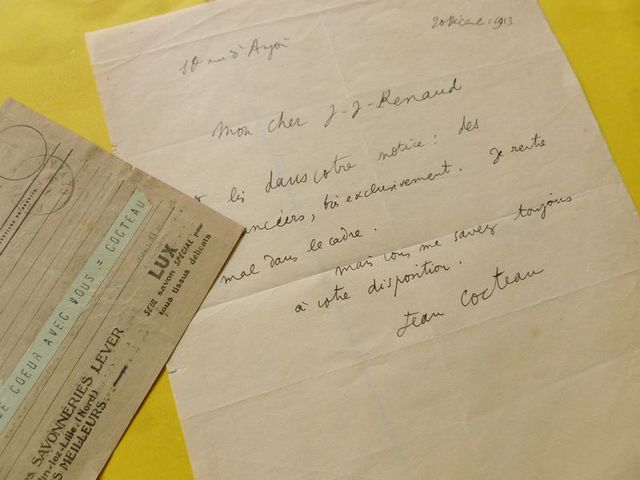 10 rue d'Anjou
20 Décembre 1913
Mon cher J-J-Renaud
lis dans votre notice : des
très exclusivement. Je rentre
mal dans le cadre.
mais vous me savez toujours
à votre disposition.
Jean Cocteau
COEUR AVEC VOUS = COCTEAU
LUX
SEUL savon SPÉCIAL pour
tous tissus délicats
SAVONNERIES LEVER
lez-Lille. (Nord)
MEILLEURS